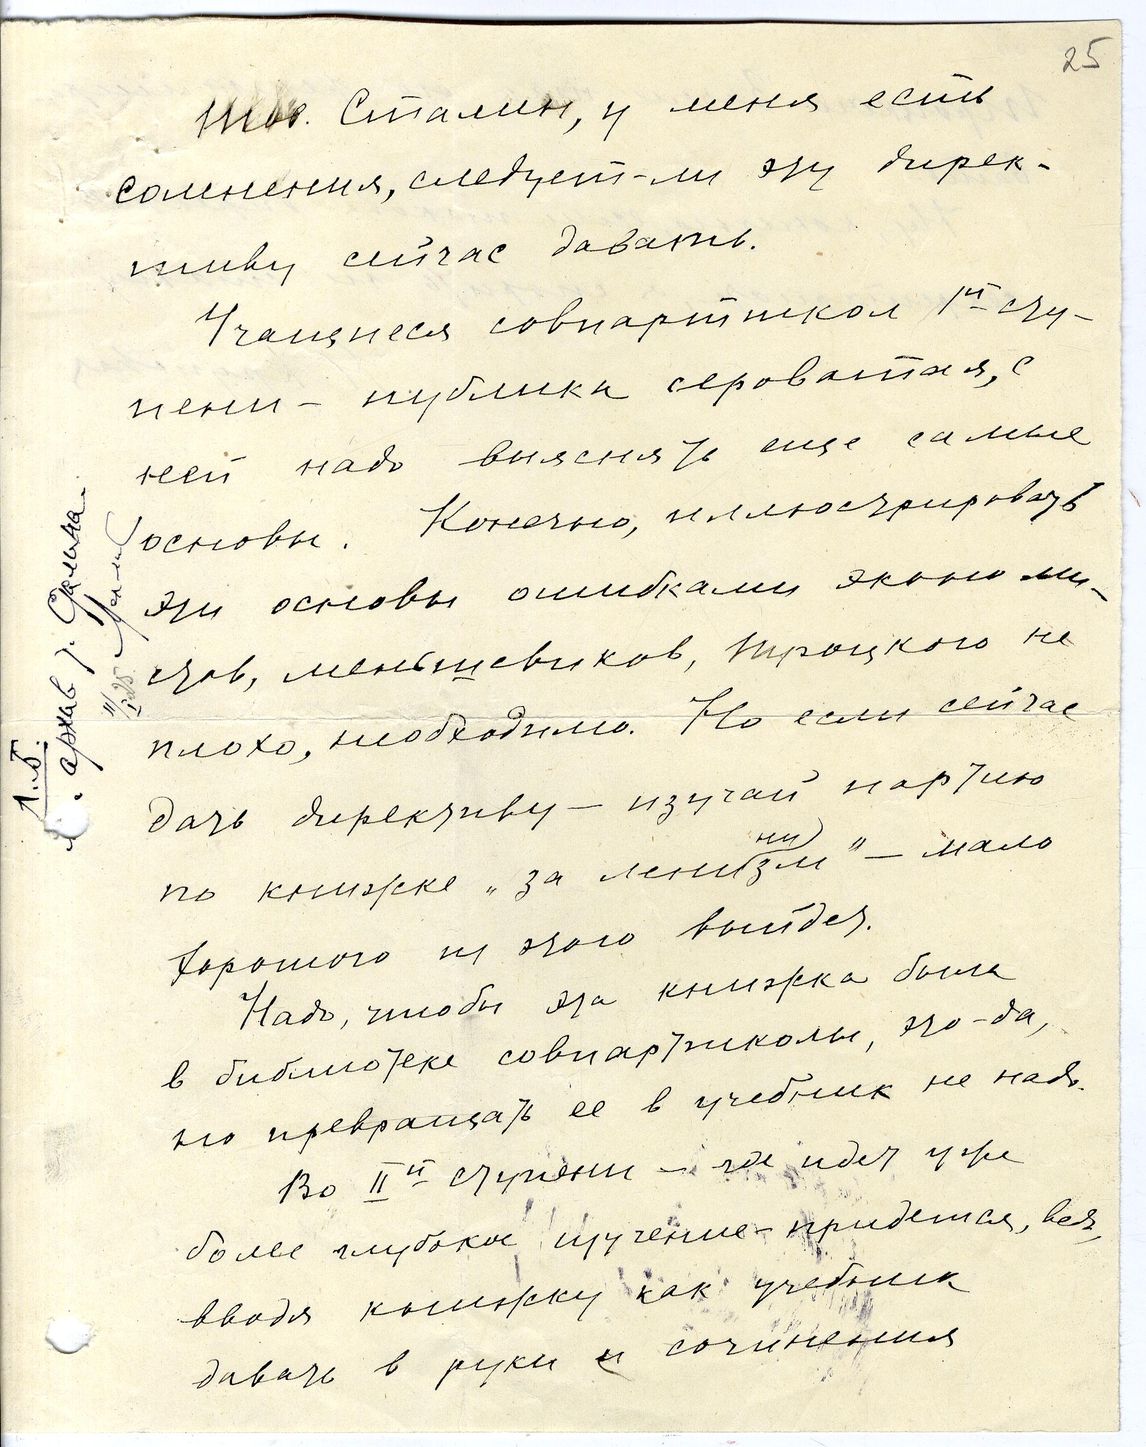 25
Тов. Сталин, у меня есть
сомнения, следует-ли эту дирек-
тиву сейчас давать.
Учащиеся совпартшкол Iй сту-
пени – публика сероватая, с
ней надо выяснять еще самые
основы. Конечно, иллюстрировать
эти основы ошибками экономи-
стов, меньшевиков, Троцкого не
плохо, необходимо. Но если сейчас
дать директиву – изучай партию
по книжке „за ленинизм" – мало
хорошого из этого выйдет.
Надо, чтобы эта книжка была
в библиотеке совпартшколы, это-да,
но превращать ее в учебник не надо.
Во IIй ступени – где идет уже
более глубокое изучение – придется, ведь,
вводя книжку как учебник
давать в руки и сочинения
Л.Б.
архив т. Сталина.